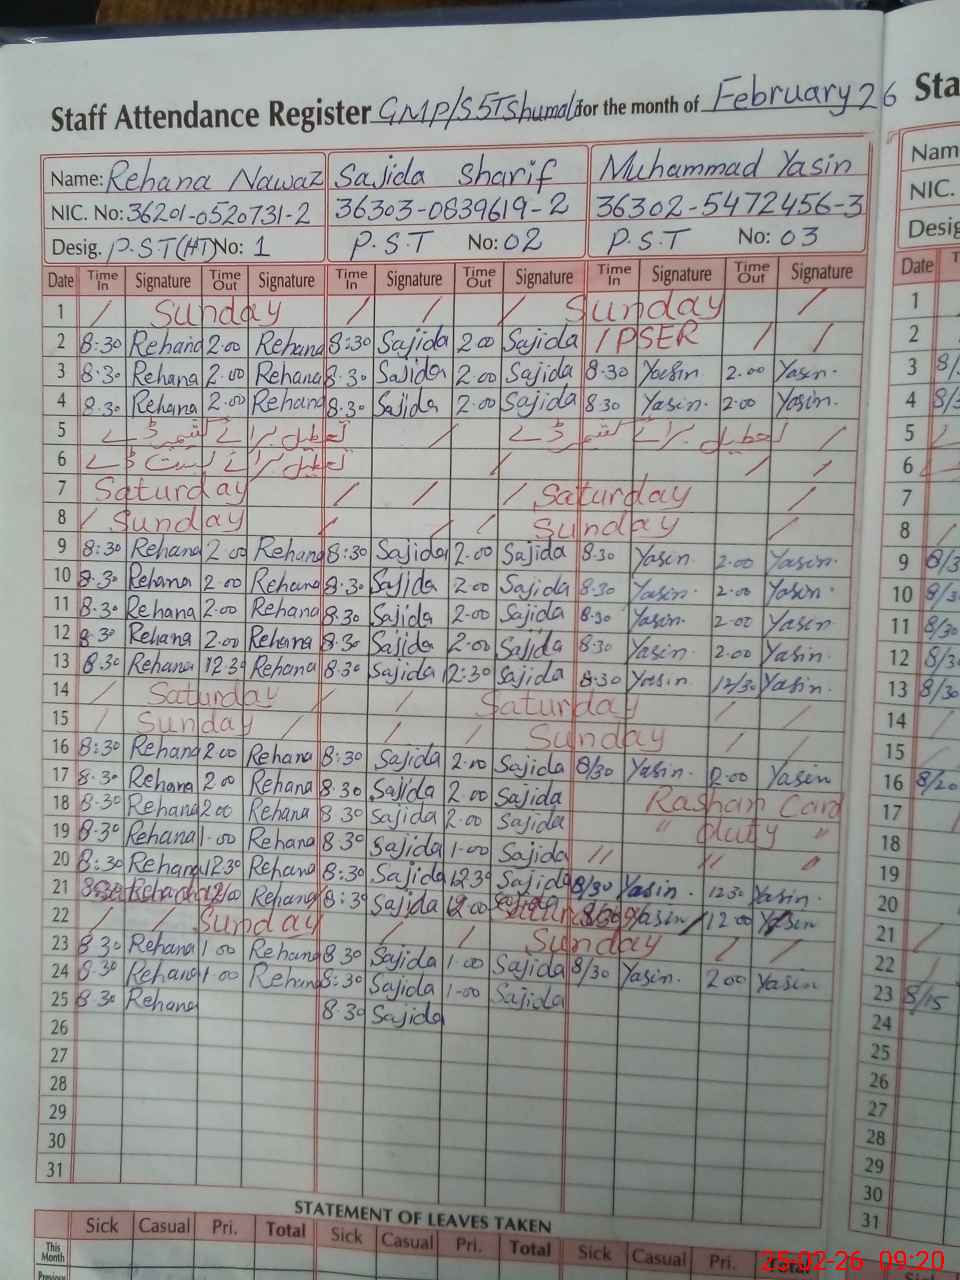 Staff Attendance Register GMP/S 5T Shumali for the month of February 26
Name: Rehana Nawaz Sajida Sharif Muhammad Yasin
NIC. No: 36201-0520731-2 36303-0839619-2 36302-5472456-3
Desig. P.S.T(HT) No: 1 P.S.T No: 02 P.S.T No: 03
Date Time In Signature Time Out Signature Time In Signature Time Out Signature Time In Signature Time Out Signature
1 / Sunday / / / Sunday /
2 8:30 Rehana 2.00 Rehana 8:30 Sajida 2.00 Sajida / PSER / /
3 8.30 Rehana 2.00 Rehana 8.30 Sajida 2.00 Sajida 8.30 Yasin 2.00 Yasin.
4 8.30 Rehana 2.00 Rehana 8.30 Sajida 2.00 Sajida 8.30 Yasin. 2.00 Yasin.
5 تعطیل برائے کشمیر ڈے / تعطیل برائے کشمیر ڈے /
6 تعطیل برائے بسنت ڈے / / /
7 Saturday / / / Saturday /
8 / Sunday / / / Sunday /
9 8:30 Rehana 2.00 Rehana 8:30 Sajida 2.00 Sajida 8.30 Yasin. 2.00 Yasin.
10 8.30 Rehana 2.00 Rehana 8.30 Sajida 2.00 Sajida 8.30 Yasin. 2.00 Yasin.
11 8.30 Rehana 2.00 Rehana 8.30 Sajida 2.00 Sajida 8.30 Yasin. 2.00 Yasin.
12 8.30 Rehana 2.00 Rehana 8.30 Sajida 2.00 Sajida 8.30 Yasin. 2.00 Yasin.
13 8.30 Rehana 12.30 Rehana 8.30 Sajida 12:30 Sajida 8.30 Yasin 12/30 Yasin.
14 / Saturday / / Saturday / /
15 / Sunday / / / Sunday / /
16 8:30 Rehana 2.00 Rehana 8:30 Sajida 2.00 Sajida 8/30 Yasin. 2.00 Yasin
17 8.30 Rehana 2.00 Rehana 8.30 Sajida 2.00 Sajida Rashan Card
18 8.30 Rehana 2.00 Rehana 8.30 Sajida 2.00 Sajida " duty "
19 8.30 Rehana 1.00 Rehana 8.30 Sajida 1.00 Sajida // // //
20 8:30 Rehana 12.30 Rehana 8:30 Sajida 12.30 Sajida 8/30 Yasin. 12.30 Yasin.
21 8.30 Rehana 12.00 Rehana 8:30 Sajida 12.00 Sajida 8.30 Yasin 12.00 Yasin
22 / / Sunday / / Sunday / /
23 8.30 Rehana 1.00 Rehana 8.30 Sajida 1.00 Sajida 8/30 Yasin. 2.00 Yasin
24 8.30 Rehana 1.00 Rehana 8:30 Sajida 1.00 Sajida
25 8.30 Rehana 8.30 Sajida
26
27
28
29
30
31
STATEMENT OF LEAVES TAKEN
Sick Casual Pri. Total Sick Casual Pri. Total Sick Casual Pri. Total
This Month
Previous
Sta
Nam
NIC.
Desig
Date
1
2
3 8/3
4 8/3
5
6
7
8
9 8/3
10 8/3
11 8/30
12 8/30
13 8/30
14
15
16 8/20
17
18
19
20
21
22
23 8/15
24
25
26
27
28
29
30
31
25-02-26 09:20